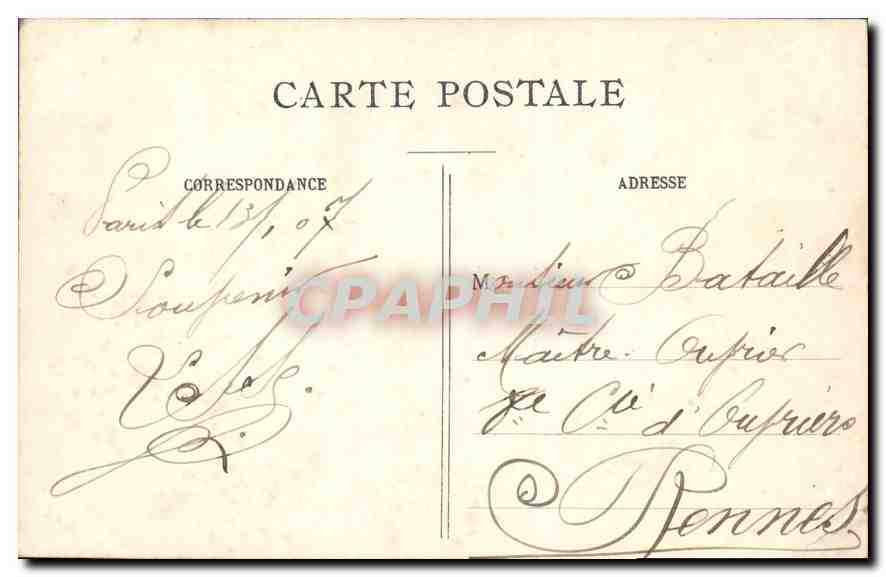 CARTE POSTALE
CORRESPONDANCE
Paris le 13/1 07
Souvenir
ADRESSE
Monsieur Bataille
Maître Ouvrier
Cie d'Ouvriers
Rennes
CPAPHIL